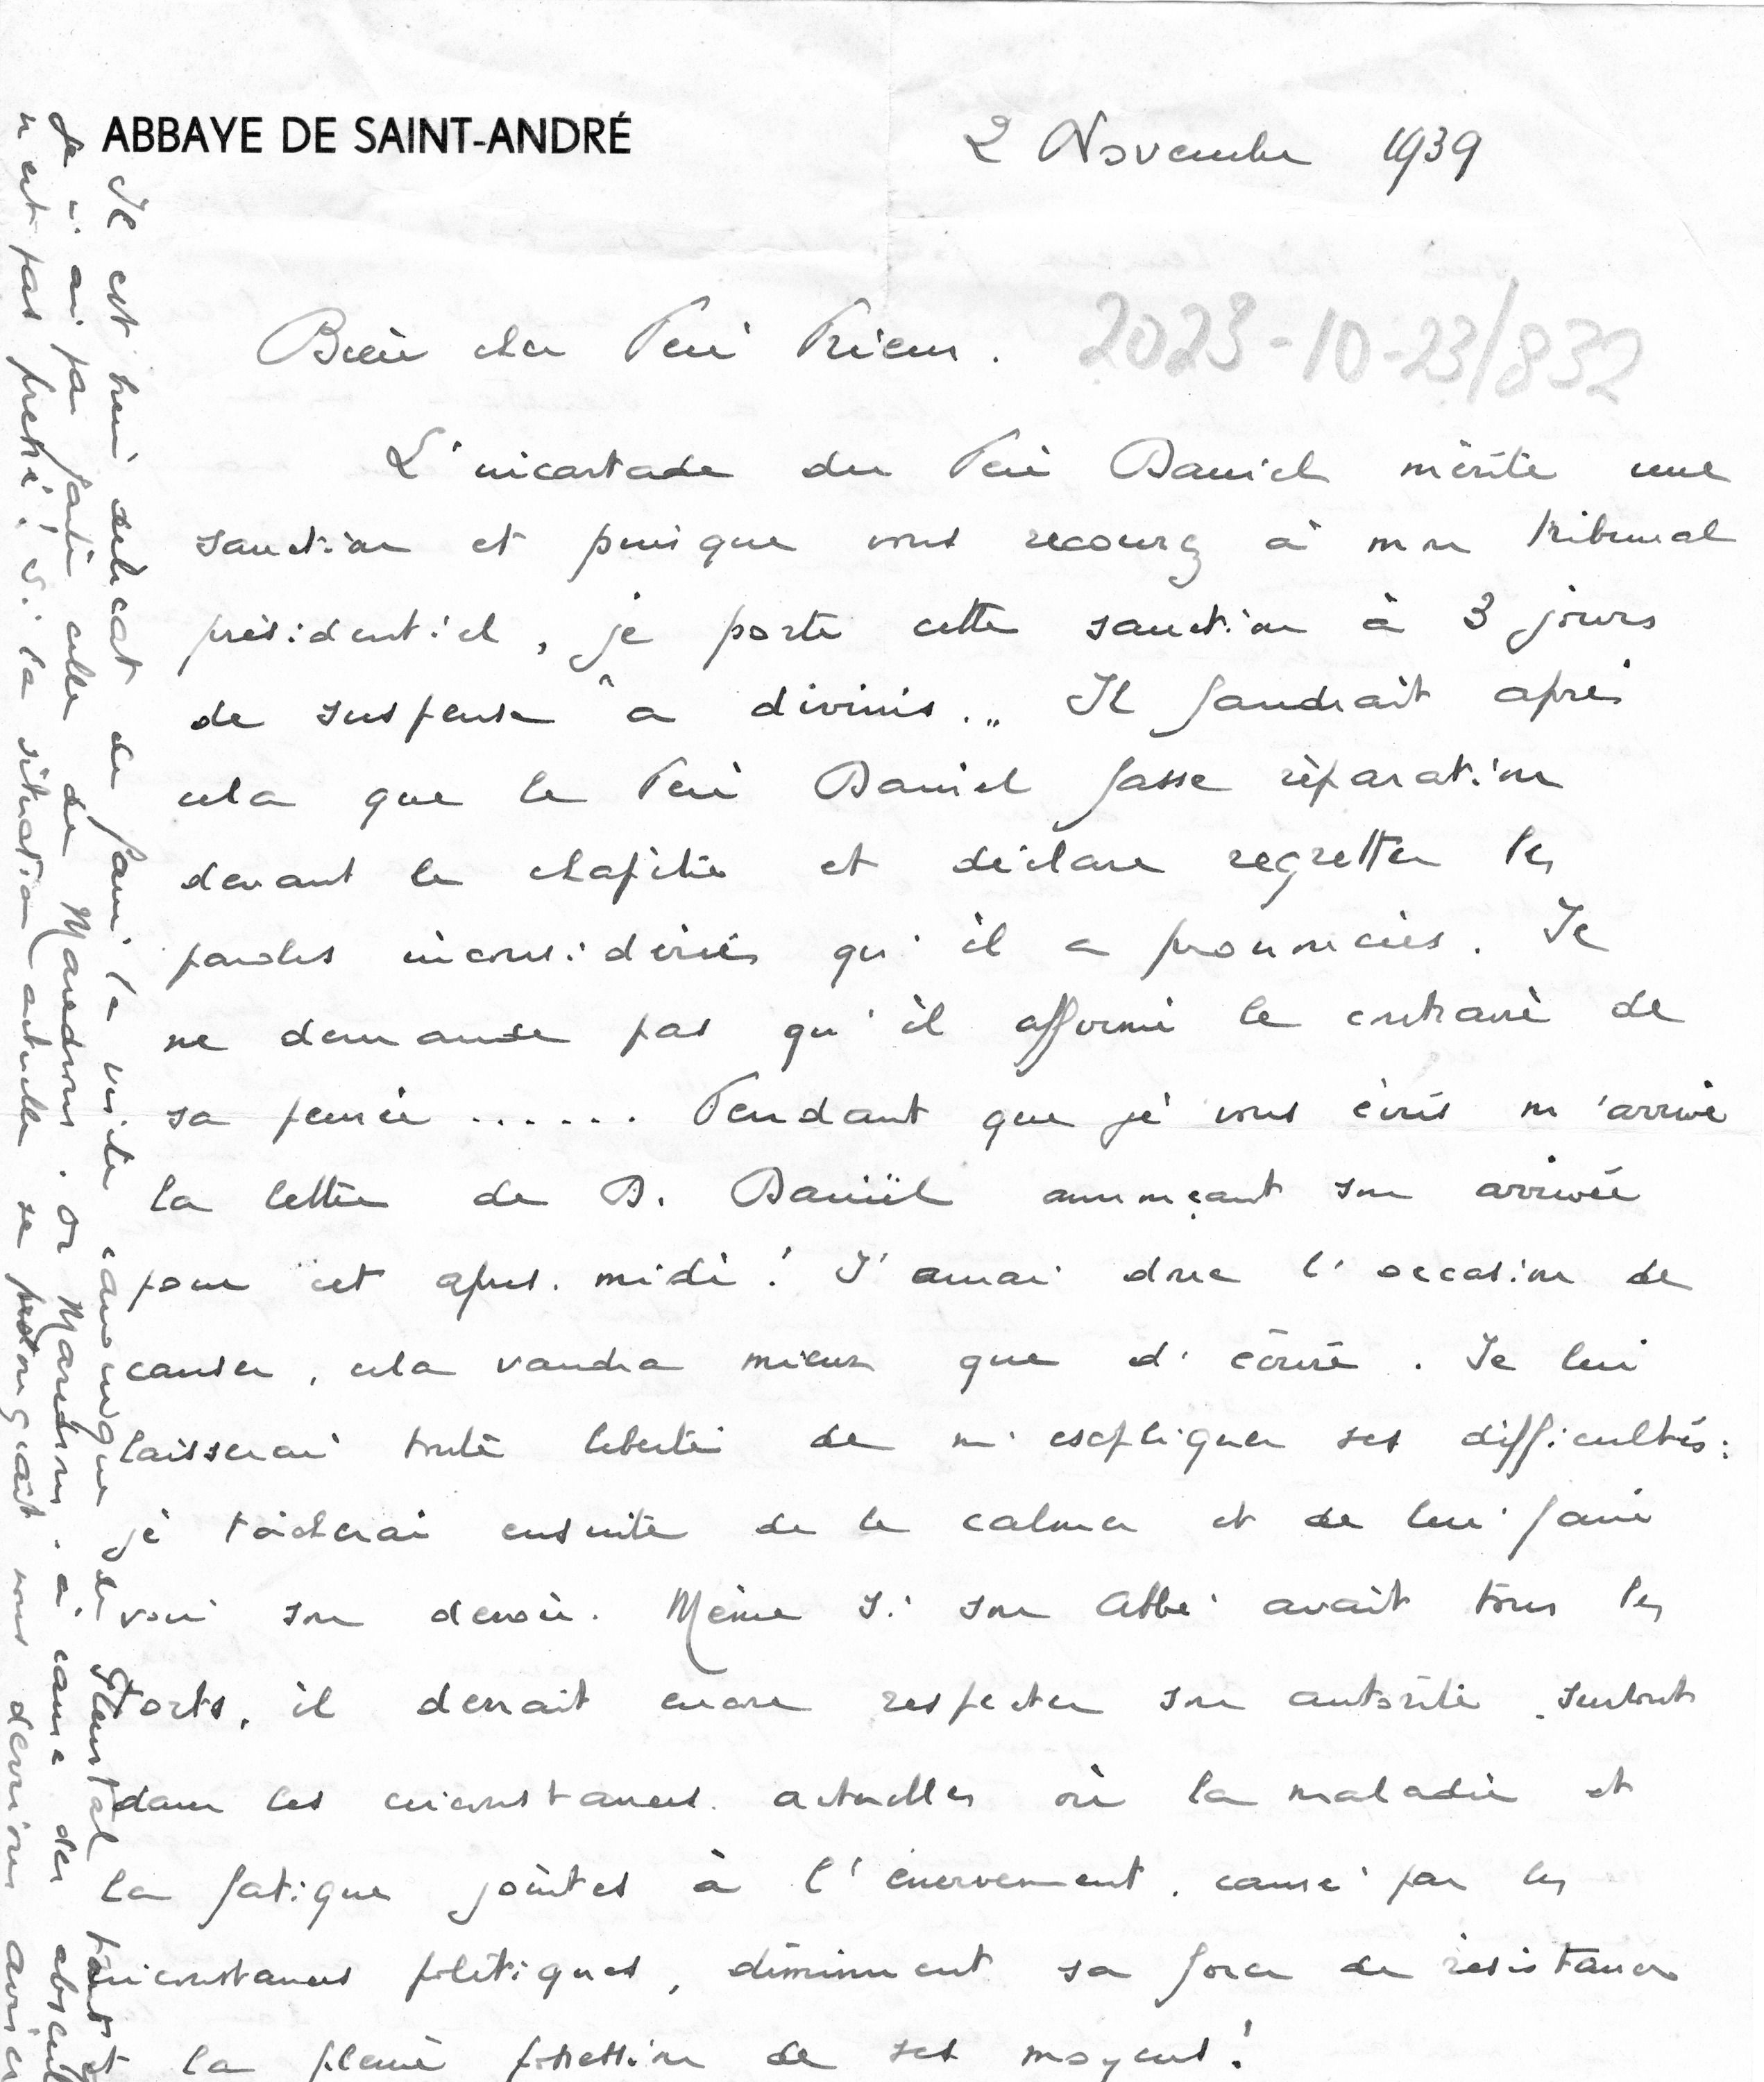 ABBAYE DE SAINT-ANDRÉ
2 Novembre 1939
2023-10-23/832
Bien cher Père Prieur.
L'incartade du Père Daniel mérite une
sanction et puisque vous recourez à mon tribunal
présidentiel, je porte cette sanction à 3 jours
de suspense "a divinis." Il faudrait après
cela que le Père Daniel fasse réparation
devant le chapitre et déclare regretter les
paroles inconsidérées qu'il a prononcées. Je
ne demande pas qu'il affirme le contraire de
sa pensée ...... Pendant que je vous écris m'arrive
la lettre de D. Daniël annonçant son arrivée
pour cet après-midi! J'aurai donc l'occasion de
causer, cela vaudra mieux que d'écrire. Je lui
laisserai toute liberté de m'expliquer ses difficultés:
je tâcherai ensuite de le calmer et de lui faire
voir son devoir. Même si son Abbé avait tous les
torts, il devrait encore respecter son autorité surtout
dans les circonstances actuelles où la maladie et
la fatigue jointes à l'énervement causé par les
circonstances politiques, diminuent sa force de résistance
la pleine possession de ses moyens!
Il est bien délicat de faire la visite canonique de Steenbrugge tant
Je n'ai pas faite celle de Maredsous. or Maredsous. à cause des absents
n'est pas prêt! Si la situation actuelle se prolongeait nous devrions aviser